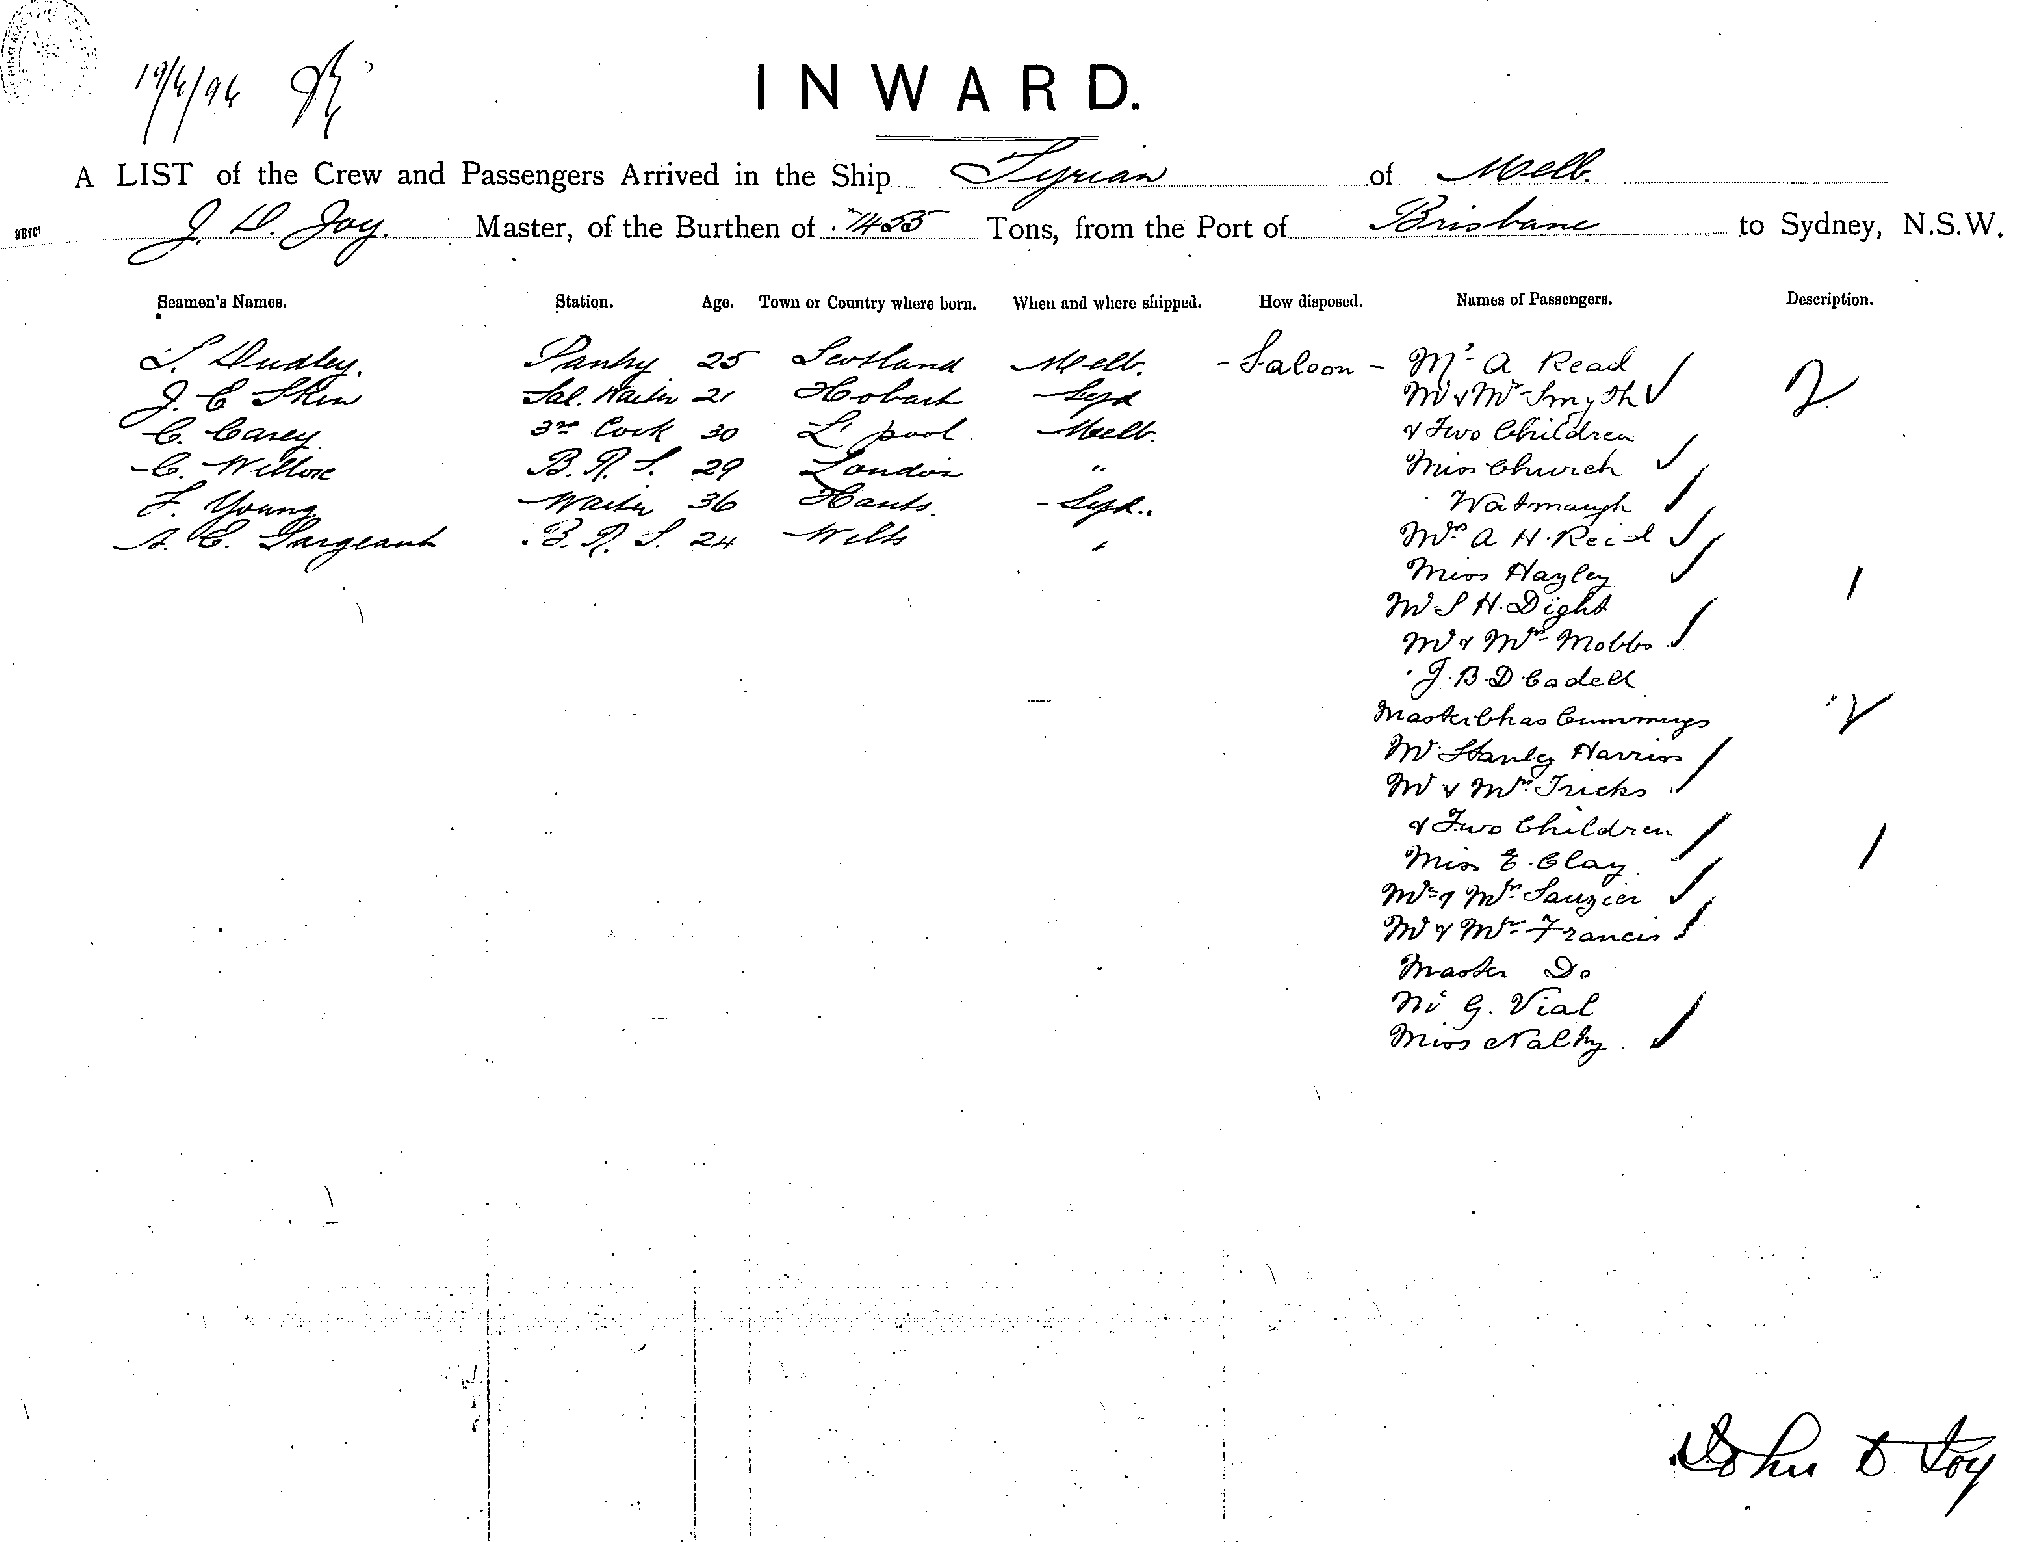 19/6/96
INWARD.
A LIST of the Crew and Passengers Arrived in the Ship Tyrian of Melb.
J. D. Joy. Master, of the Burthen of 1455 Tons, from the Port of Brisbane to Sydney, N.S.W.
Seamen's Names. Station. Age. Town or Country where born. When and where shipped. How disposed. Names of Passengers. Description.
S. Dudley. Pantry 25 Scotland Melb. - Saloon - Mr A Read 2
J. C Skin Sal. Waiter 21 Hobart Syd Mr & Mrs Smyth
C. Carey 3rd Cook 30 L'pool Melb. & Two Children
C. Wilton B. R. S. 29 London " Miss Church
F. Young Waiter 36 Hants. - Syd.. " Watmaugh
A. E. Sargeant B. R. S. 24 Wilts " Mrs A H. Reid
Miss Hayley 1
Mr S H. Dight
Mr & Mrs Mobbs
J. B. D. Cadell
Master Chas Cummings 2
Mr Stanley Harriss
Mr & Mrs Tricks
& Two Children
Miss E. Clay 1
Mr & Mrs Sauzier
Mr & Mrs Francis
Master Do
Mr G. Vial
Miss Nalty
John D Joy